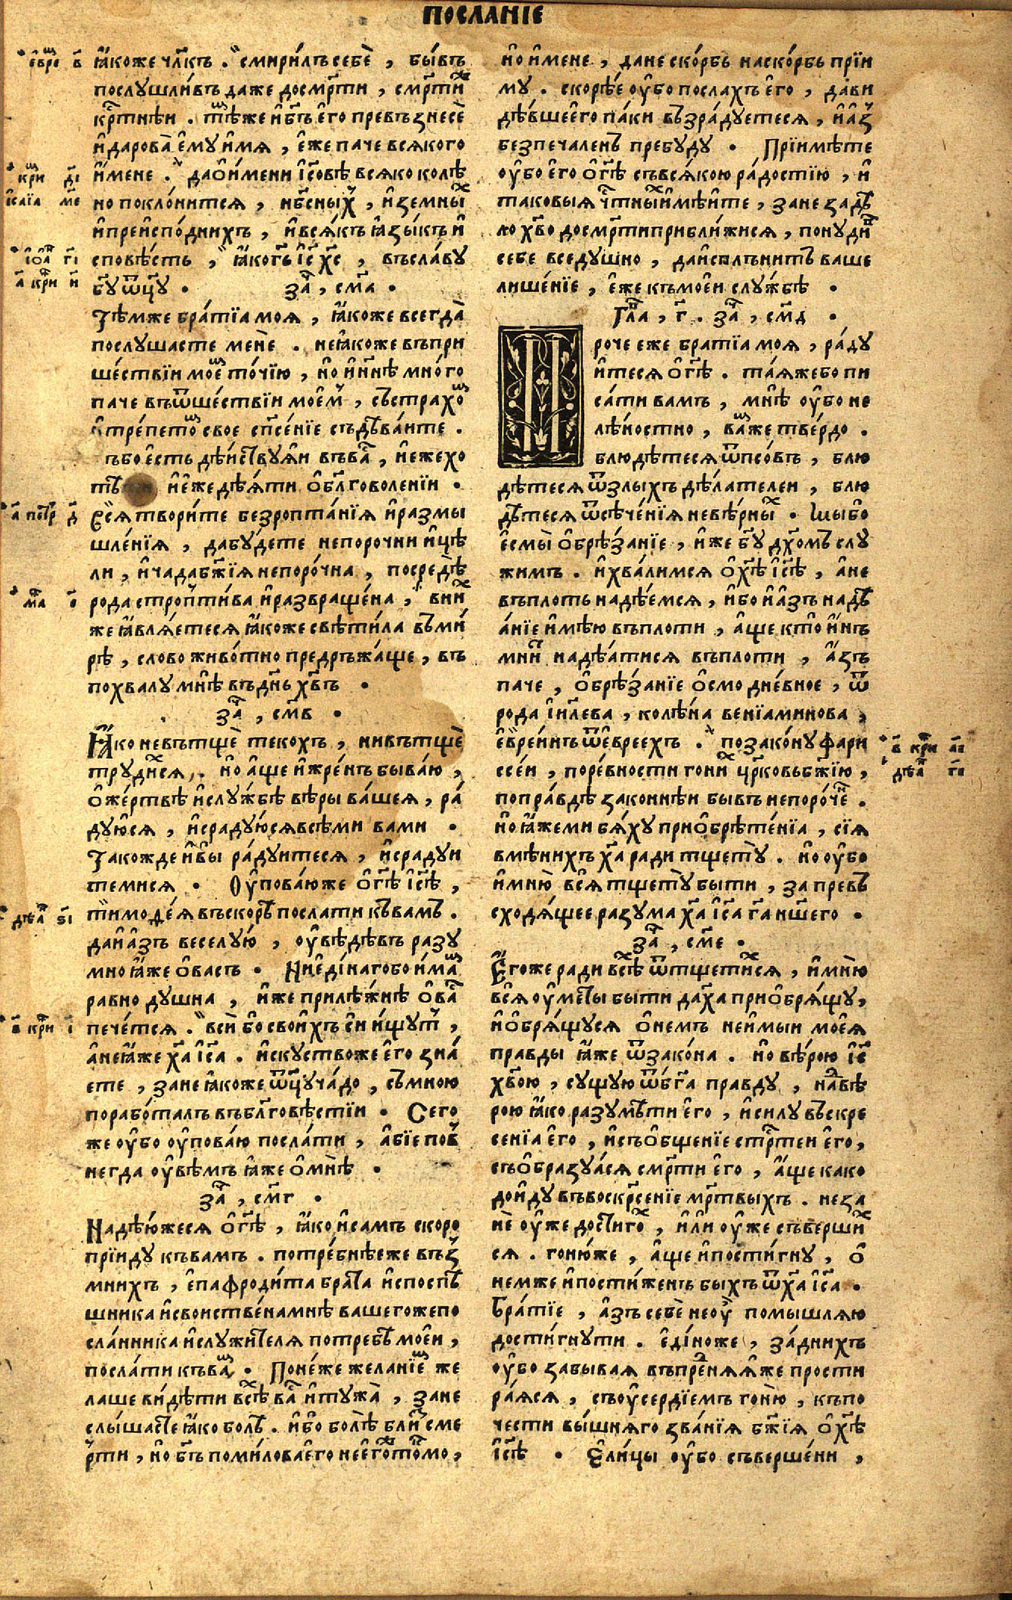 посланїе
ꙗ҆́коже чл҃къ . смирилъ себѐ , бы́въ
послушли́въ даже досмр҃ти , смр҃тиⷤ
крⷭ҇тнѣи . тѣ́мже и҆бг҃ъ его̀ превъзнесѐ
и҆дарова̀ є҆мꙋ и҆мя , є҆же паче всякого
и҆мене . даѻ҆имени і҆со́вѣ всяко колѣ
но покло́нится , нбⷭ҇ныхъ , и҆земныⷯ
и҆преиспо́днихъ , и҆вся́къ ꙗ҆зы́къ и҆
сповѣ́сть , ꙗ҆когⷭ҇ь і҆с҃ хс҃ , въсла́вꙋ
бг҃ꙋ ѿц҃ꙋ . заⷱ , см҃а .
Тѣ́мже бра́тїа моя , ꙗ҆коже всегда̀
послушасте менѐ . неꙗ҆коже въпри
ше́ствїи моеⷨ то́чїю , но и҆нн҃ѣ мно́го
паче въѿше́ствїи моеⷨ , състрахоⷨ
и҆тре́петоⷨ свое спⷭ҇е́нїе съдѣ́ваите .
бг҃ъбо є҆сть дѣ́иствꙋяи въваⷭ , и҆ еже хо
тѣ и҆ еже дѣ́яти ѻ҆ блг҃оволенїи .
Вся твори́те безропта́нїя и҆размы
шле́нїя , дабꙋ́дете непорочни и҆цѣ
ли , и҆ча́да бж҃їя непоро́чна , посредѣ̀
рода стропти́ва и҆развраще́на , вниⷯ
же ꙗ҆вля́етеся ꙗ҆коже свѣти́ла въми́
рѣ , слово живо́тно предръжа́ще , въ
похвалꙋ мнѣ̀ въдн҃ь хв҃ъ .
заⷱ , см҃в .
Ꙗ҆́ко невътщѐ теко́хъ , нивътщѐ
трꙋди́хся . но а҆ще и҆жре́нъ быва́ю ,
ѻ҆же́ртвѣ и҆слꙋ́жбѣ вѣры ва́шея , ра́
дꙋюся , и҆срадꙋ́юся всѣ́ми ва́ми .
Такожде и҆вы̀ ра́дꙋитеся , и҆срадꙋи
темися . Оу҆пова́юже ѻ҆ гдⷭ҇ѣ і҆с҃ѣ ,
тимоѳе́я въскорѣ посла́ти къва́мъ .
да и҆азъ веселꙋ́ю , оу҆вѣ́дѣвъ разꙋ
мно ꙗ҆же ѻ҆васъ . Ниеди́наго бо и҆маⷨ
равно дꙋшна , и҆же прилѣ́жнѣ ѻ҆ваⷭ
пече́тся . всѝ бо свои́хъ си и҆́щꙋт ,
а҆не ꙗ҆же ха҃ і҆с҃а . и҆скꙋство же є҆го зна́
ете , зане ꙗ҆коже ѿц҃ꙋ ча́до , съмною
порабо́талъ въблг҃овѣ́стїи . Сего
же оу҆́бо оу҆пова́ю посла́ти , а҆бїе пов
негда оу҆вѣмъ ꙗ҆же ѻ҆мнѣ̀ .
заⷱ , см҃г .
Надѣ́южеся ѻ҆ гдⷭ҇ѣ , ꙗ҆ко и҆самъ скоро
прїидꙋ къвамъ . потре́бнѣеже въз
мнихъ , є҆пафроди́та бра́та и҆споспѣ
шника и҆свои́нствена мнѣ̀ вашегоже по
сла́нника и҆слꙋжи́теля потребѣ мое́и ,
посла́ти къваⷨ . Поне́же желанїеⷨ же
лаше ви́дѣти всѣ̀ ваⷭ и҆тꙋжа̀ , зане
слышасте ꙗ҆ко болѣ . и҆бо болѣ̀ близ сме
рти , но бг҃ъ помилова его не є҆гоⷤ то́кмо ,
но и҆ мене , дане ско́рбь наско́рбь прїи
мꙋ . скорѣ́е оу҆бо посла́хъ є҆го , дави
дѣ́вше є҆го паки възра́дꙋетеся , и҆ а҆з
безпечаленъ пребꙋдꙋ . Прїимѣ́те
оу҆бо его ѻ҆ гдⷭ҇ѣ съвсякою ра́достїю , и҆
таковыя чⷭ҇тны и҆мѣ́ите , зане задѣ́
ло хв҃о досмр҃ти прибли́жися , понꙋди́въ
себе вседꙋшно , да и҆сплънитъ ваше
лише́нїе , є҆же къмоеи слꙋжбѣ .
Глаⷡ , г҃ . заⷱ , см҃д .
Проче еже бра́тїа моя , ра́дꙋ
итеся ѻ҆ гдⷭ҇ѣ . та́яжебо пи
са́ти вамъ , мнѣ̀ оу҆бо не
лѣ́ностно , ваⷨже тве́рдо .
блюдѣ́теся ѿпсо́въ , блю
дѣ́теся ѿзлы́хъ дѣ́лателеи , блю
дѣ́теся ѿсѣче́нїя невѣ́рныⷯ . Мы бо
є҆смы̀ ѻ҆брѣ́занїе , и҆же бг҃ꙋ дх҃омъ слꙋ
жимъ . и҆хва́лимся ѻ҆ хс҃ѣ і҆с҃ѣ , а҆не
въплоть надѣ́емся , и҆бо и҆азъ надѣ́
а́нїе и҆мѣ́ю въплоти , а҆ще кто̀ и҆нъ
мниⷮ надѣ́атися въплоти , а҆зъ
паче , ѻ҆брѣ́занїе ѻ҆смодне́вное , ѿ
рода і҆и҃лева , колѣ́на венїами́нова ,
є҆вре́инъ ѿевре́ехъ . позако́нꙋ фари
се́и , поре́вности гониⷯ цр҃ковь бж҃їю ,
попра́вдѣ зако́ннѣи бы́въ непоро́чеⷩ .
но ꙗ҆же ми бя́хꙋ приѻ҆брѣте́нїа , сїя
вмѣни́хъ ха҃ ради тщетꙋ̀ . но оу҆бо
и҆мню̀ вся тщетꙋ бы́ти , за превъ
сходя́щее разꙋма ха҃ і҆с҃а гдⷭ҇а н҃шего .
заⷱ , см҃е .
Є҆го́же ради всѣ̀ ѿтщети́хся , и҆ мню̀
вся оу҆ме́ты быти да ха҃ приѻ҆бря́щꙋ ,
и҆ѻ҆бря́щꙋся ѻ҆ немъ неи҆мыи моея̀
правды ꙗ҆же ѿзако́на . но вѣ́рою і҆с҃
хв҃ою , сꙋ́щꙋю ѿбг҃а правдꙋ , навѣ
рою ꙗ҆ко разꙋмѣти его , и҆силꙋ въскре
сенїа є҆го , и҆съѻ҆бще́нїе стрⷭ҇теи є҆го ,
съѻ҆бразꙋ́ася смр҃ти его , а҆ще како
до и҆дꙋ въвоскрⷭ҇енїе мр҃твыхъ . не за
нѐ оу҆же дости́гоⷯ , и҆ли оу҆же съверши́ⷯ
ся . гоню́же , а҆ще и҆пости́гнꙋ , ѻ҆
не́мже и҆пости́женъ быхъ ѿха҃ і҆с҃а .
Бра́тїе , а҆зъ себѐ не оу҆̀ помышля́ю
дости́гнꙋти . еди́ноже , за́днихъ
оу҆бо забывая въпре́дняяже прости
ра́яся , съоу҆се́рдїемъ гоню̀ , къпо
чести вы́шняго зва́нїя бж҃їя ѻ҆ хс҃ѣ
і҆с҃ѣ . Єли́цы оу҆бо съверше́ни ,
є҆вре в҃
кри д҃і
и҆саїа м҃е
і҆оаⷩ г҃і
а҃ кри и҃
а҃ петр д҃
маⷴ е҃
дѣаⷩ ѕ҃і
в҃ кри і҃
в҃ кри а҃і
дѣаⷩ г҃і